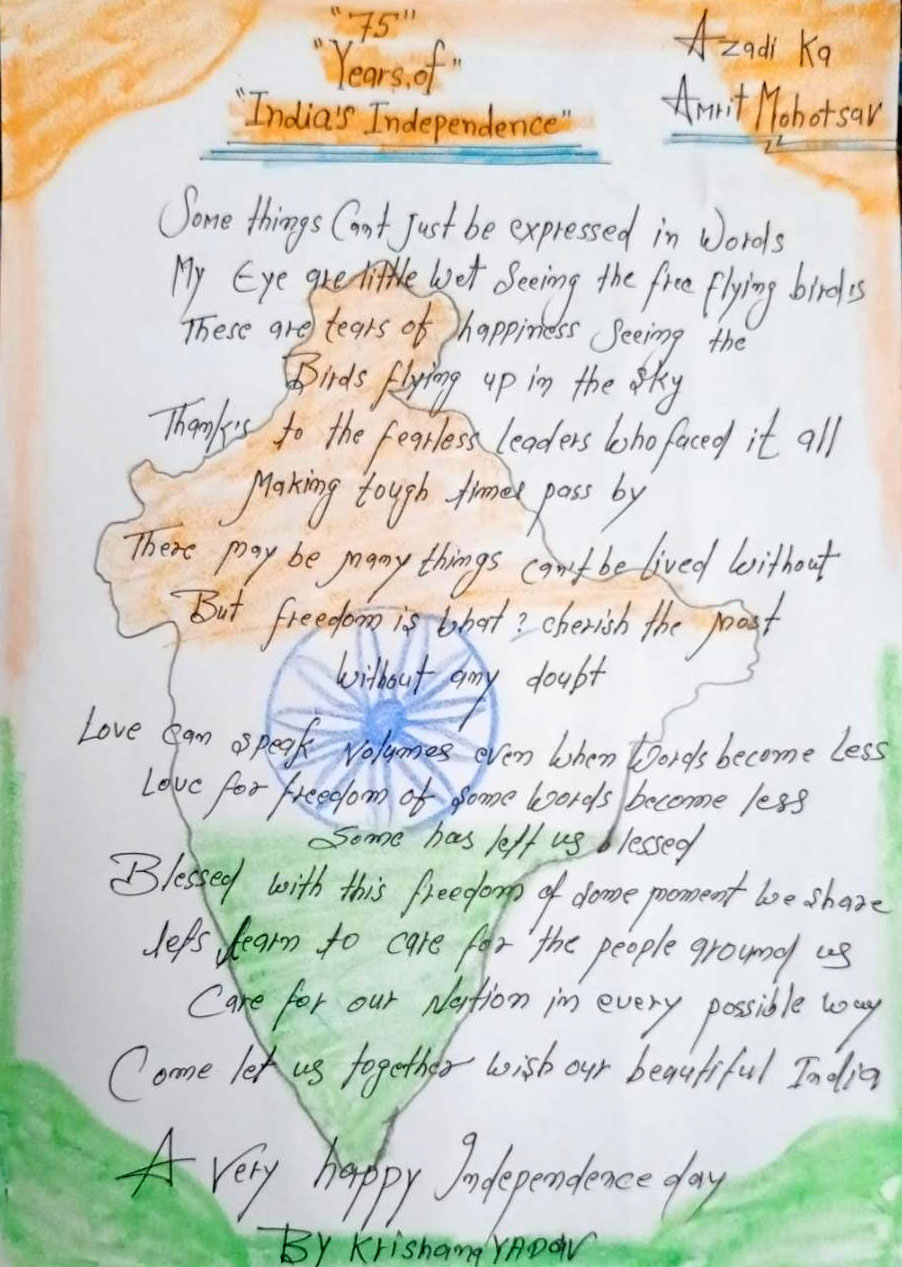 "75"
"Years of"
"India's Independence"
Azadi Ka
Amrit Mohotsav
Some things Cant Just be expressed in Words
My Eye are little Wet Seeing the free flying birds
These are tears of happiness Seeing the
Birds flying up in the Sky
Thank's to the fearless leaders Who faced it all
Making tough times pass by
There may be many things can't be lived Without
But freedom is What ? cherish the most
Without any doubt
Love can speak Volumes even When Words become Less
Love for freedom of some Words become less
Some has left us blessed
Blessed with this freedom of some moment We share
lets learn to care for the people around us
Care for our Nation in every possible way
Come let us together wish our beautiful India
A Very happy Independence day
By Krishana YADAV